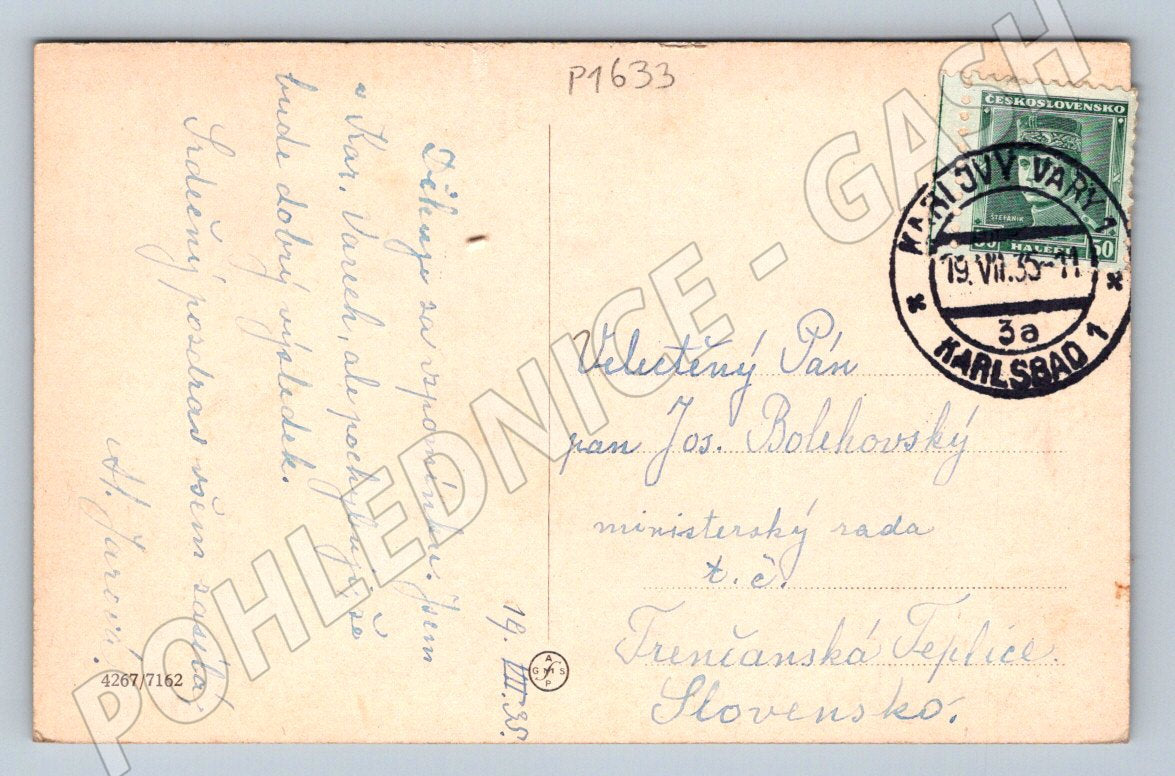 P1633
Děkuji za vzpomínku. Jsem
v Kar. Varech, ale pochybuji že
bude dobrý výsledek.
Srdečný pozdrav všem zasílá
19. VII. 35.
Veluctěný Pán
pan Jos. Bolehovský
ministerský rada
t. č.
Trenčanská Teplice
Slovensko.
ČESKOSLOVENSKO
ŠTEFÁNIK
50 HALÉŘ 50
KARLOVY VARY 1
19. VII. 35-11
3a
KARLSBAD 1
4267/7162
POHLEDNICE - GASH